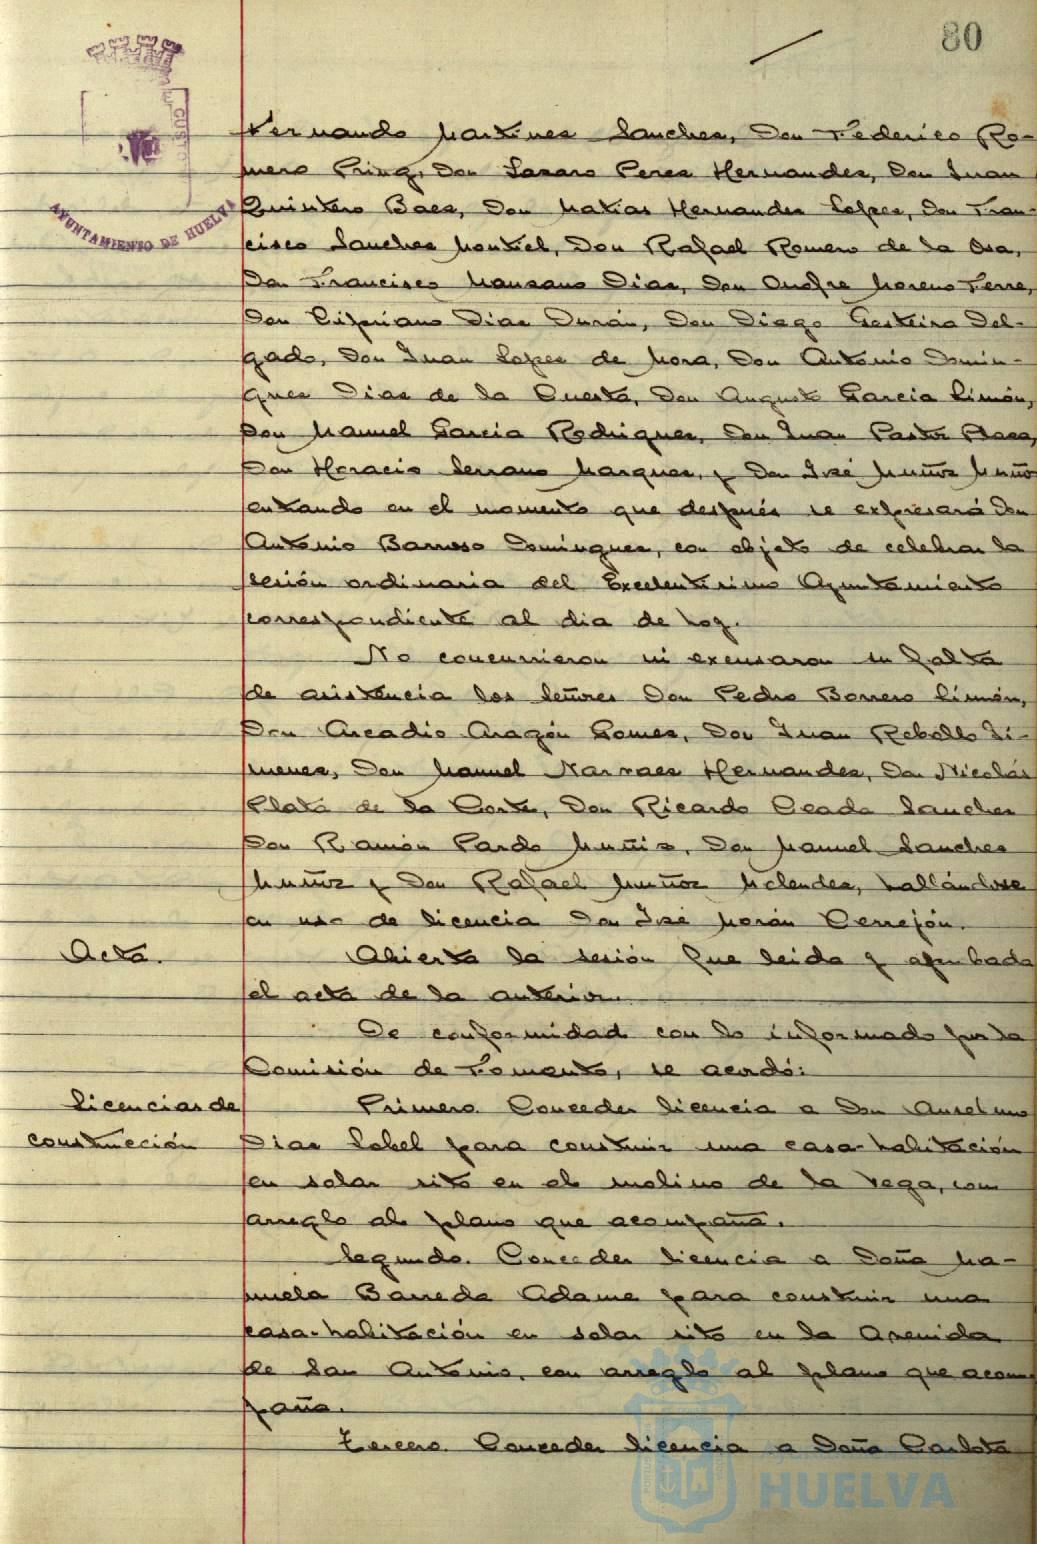 80
CUSTO
AYUNTAMIENTO DE HUELVA
Fernando Martinez Sanchez, Don Federico Ro-
mero Pring, Don Lazaro Perez Hernandez, Don Juan
Quintero Baez, Don Matias Hernandez Lopez, Don Fran-
cisco Sanchez Montiel, Don Rafael Romero de la Osa,
Don Francisco Manzano Diaz, Don Onofre Moreno Ferre,
Don Cipriano Diaz Durán, Don Diego Gesteira Del-
gado, Don Juan Lopez de Mora, Don Antonio Domin-
guez Diaz de la Cuesta, Don Augusto Garcia Simón,
Don Manuel Garcia Rodriguez, Don Juan Pastor Plaza,
Don Horacio Serrano Marquez, y Don José Muñoz Muño
entrando en el momento que después se expresará Don
Antonio Barroso Dominguez, con objeto de celebrar la
sesión ordinaria del Excelentisimo Ayuntamiento
correspondiente al dia de hoy.
No concurrieron ni excusaron su falta
de asistencia los Señores Don Pedro Borrero Simón,
Don Arcadio Aragón Gomez, Don Juan Rebollo Ji-
menez, Don Manuel Narvaez Hernandez, Don Nicolás
Plata de la Corte, Don Ricardo Ceada Sanchez
Don Ramón Pardo Muñiz, Don Manuel Sanchez
Muñoz y Don Rafael Muñoz Melendez, hallándose
en uso de licencia Don José Morán Cerrejón.
Acta.
Abierta la sesión fue leida y aprobada
el acta de la anterior.
De conformidad con lo informado por la
Comisión de Fomento, se acordó:
Licencias de
construcción
Primero. Conceder licencia a Don Anselmo
Diaz Sobel para construir una casa-habitación
en solar sito en el molino de la Vega, con
arreglo al plano que acompaña.
Segundo. Conceder licencia a Doña Ma-
nuela Barreda Adame para construir una
casa-habitación en solar sito en la Avenida
de San Antonio, con arreglo al plano que acom-
paña.
Tercero. Conceder licencia a Doña Carlota
HUELVA